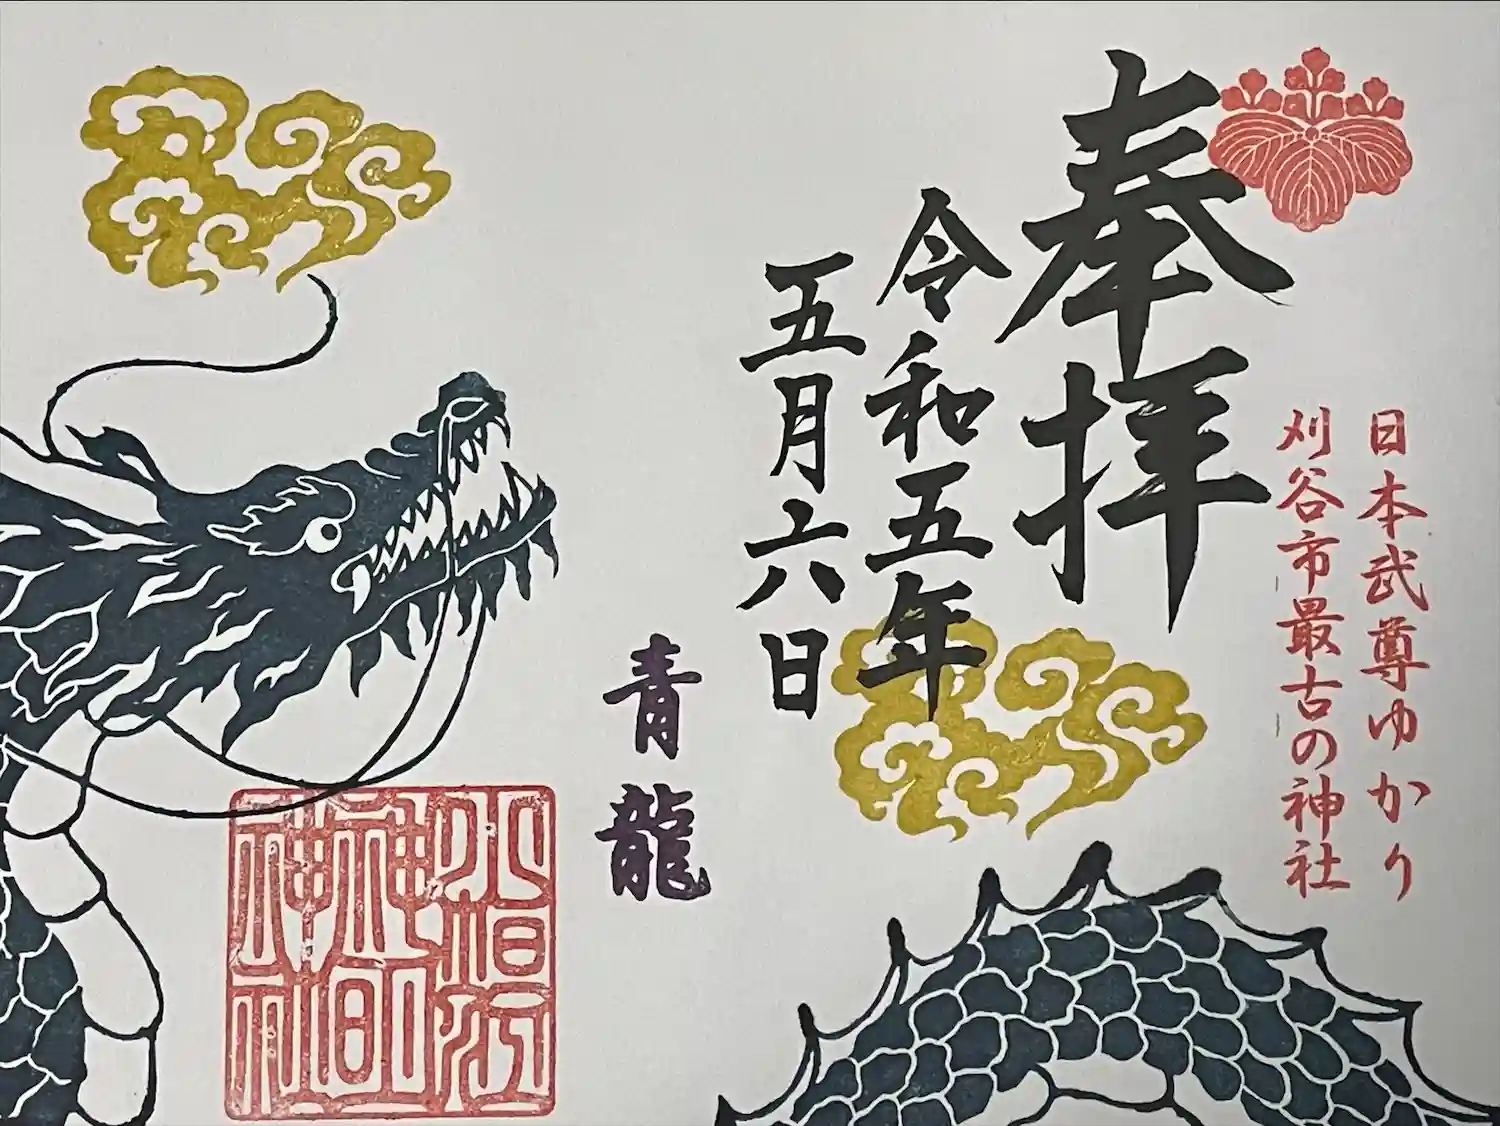 日本武尊ゆかり
刈谷市最古の神社
奉拝
令和五年
五月六日
青龍